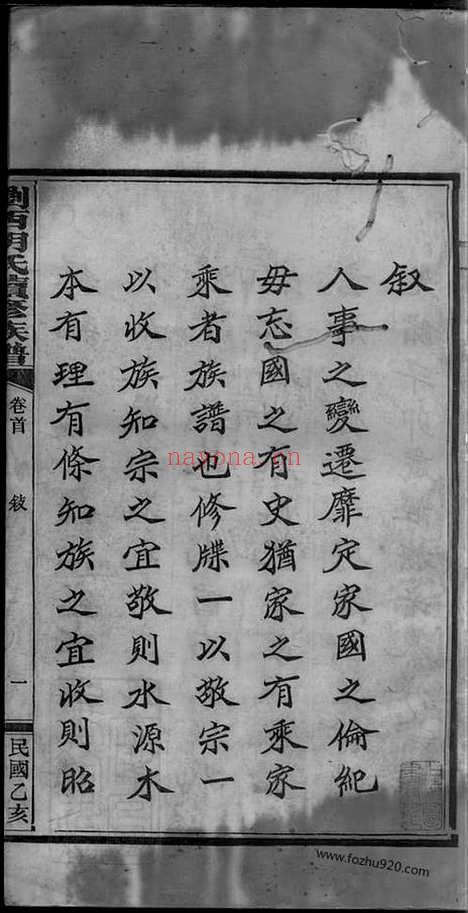 叙
人事之變遷靡定家國之倫紀
毋忘國之有史猶家之有乘家
乘者族譜也修牒一以敬宗一
以收族知宗之宜敬則水源木
本有理有條知族之宜收則昭
氏續修族譜
卷首
敍
一
民國乙亥
nayona.cn
www.fozhu920.com